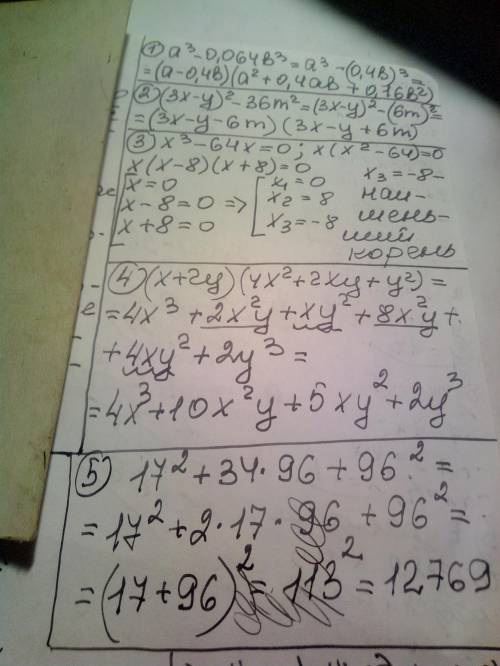 ① a³-0,064в³=a³-(0,4в)³=
=(a-0,4в)(a²+0,4aв+0,16в²)
② (3x-y)²-36m²=(3x-y)²-(6m)²=
=(3x-y-6m)(3x-y+6m)
③ x³-64x=0; x(x²-64)=0
x(x-8)(x+8)=0
x=0
x-8=0 =>
x+8=0
x₁=0
x₂=8
x₃=-8
x₃=-8-
наи-
мень-
ший
корень
④ (x+2y)(4x²+2xy+y²)=
=4x³+2x²y+xy²+8x²y+
+4xy²+2y³=
=4x³+10x²y+5xy²+2y³
⑤ 17²+34·96+96²=
=17²+2·17·96+96²=
=(17+96)²=113²=12769